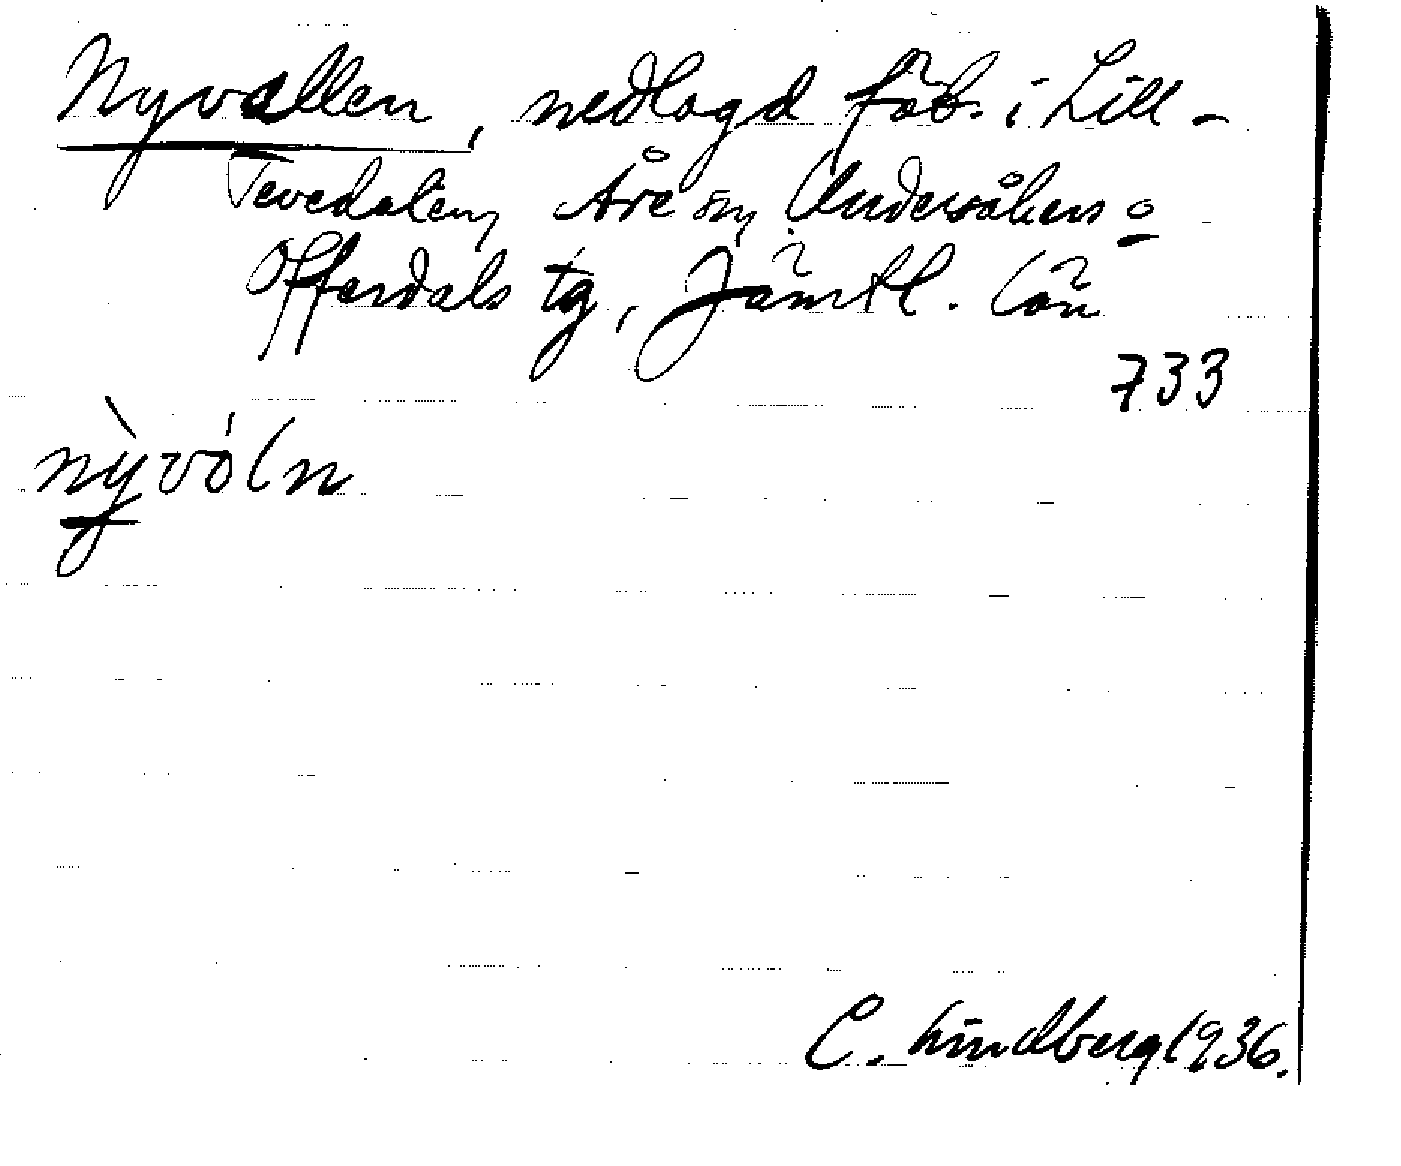 Nyvallen, nedlagd fäb. i Lill-
Tevedalen, Åre sn, Undersåkers o
Offerdals tg, Jämtl. län
733
nỳvóln
C. Lindberg 1936.